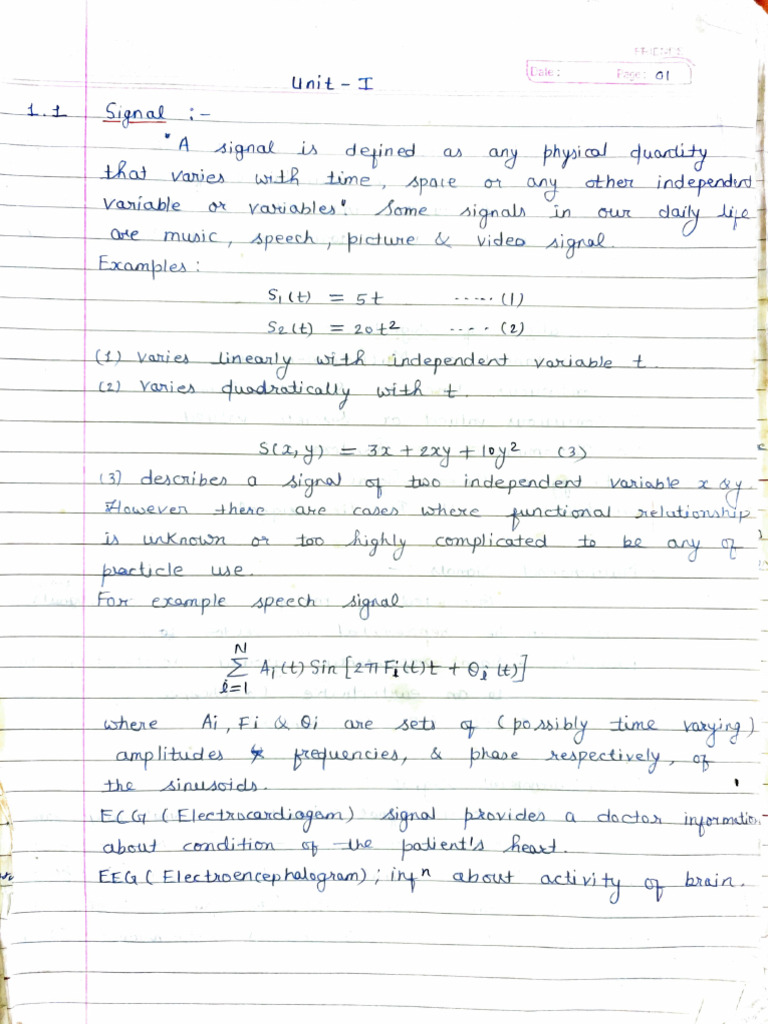 FRIENDS
Date : Page : 01
Unit - I
1.1 Signal :-
"A signal is defined as any physical quantity
that varies with time, space or any other independent
variable or variables". Some signals in our daily life
are music, speech, picture & video signal.
Examples :
S₁(t) = 5t ..... (1)
S₂(t) = 20t² .... (2)
(1) varies linearly with independent variable t.
(2) varies quadratically with t.
S(x, y) = 3x + 2xy + 10y² (3)
(3) describes a signal of two independent variable x & y.
However these are cases where functional relationship
is unknown or too highly complicated to be any of
practicle use.
For example speech signal
N
∑ Ai(t) Sin [2π Fi(t)t + θi(t)]
i=1
where Ai, Fi & θi are sets of (possibly time varying)
amplitudes frequencies, & phase respectively, of
the sinusoids.
ECG (Electrocardiogam) signal provides a doctor information
about condition of the patient's heart.
EEG (Electroencephalogram); infⁿ about activity of brain.